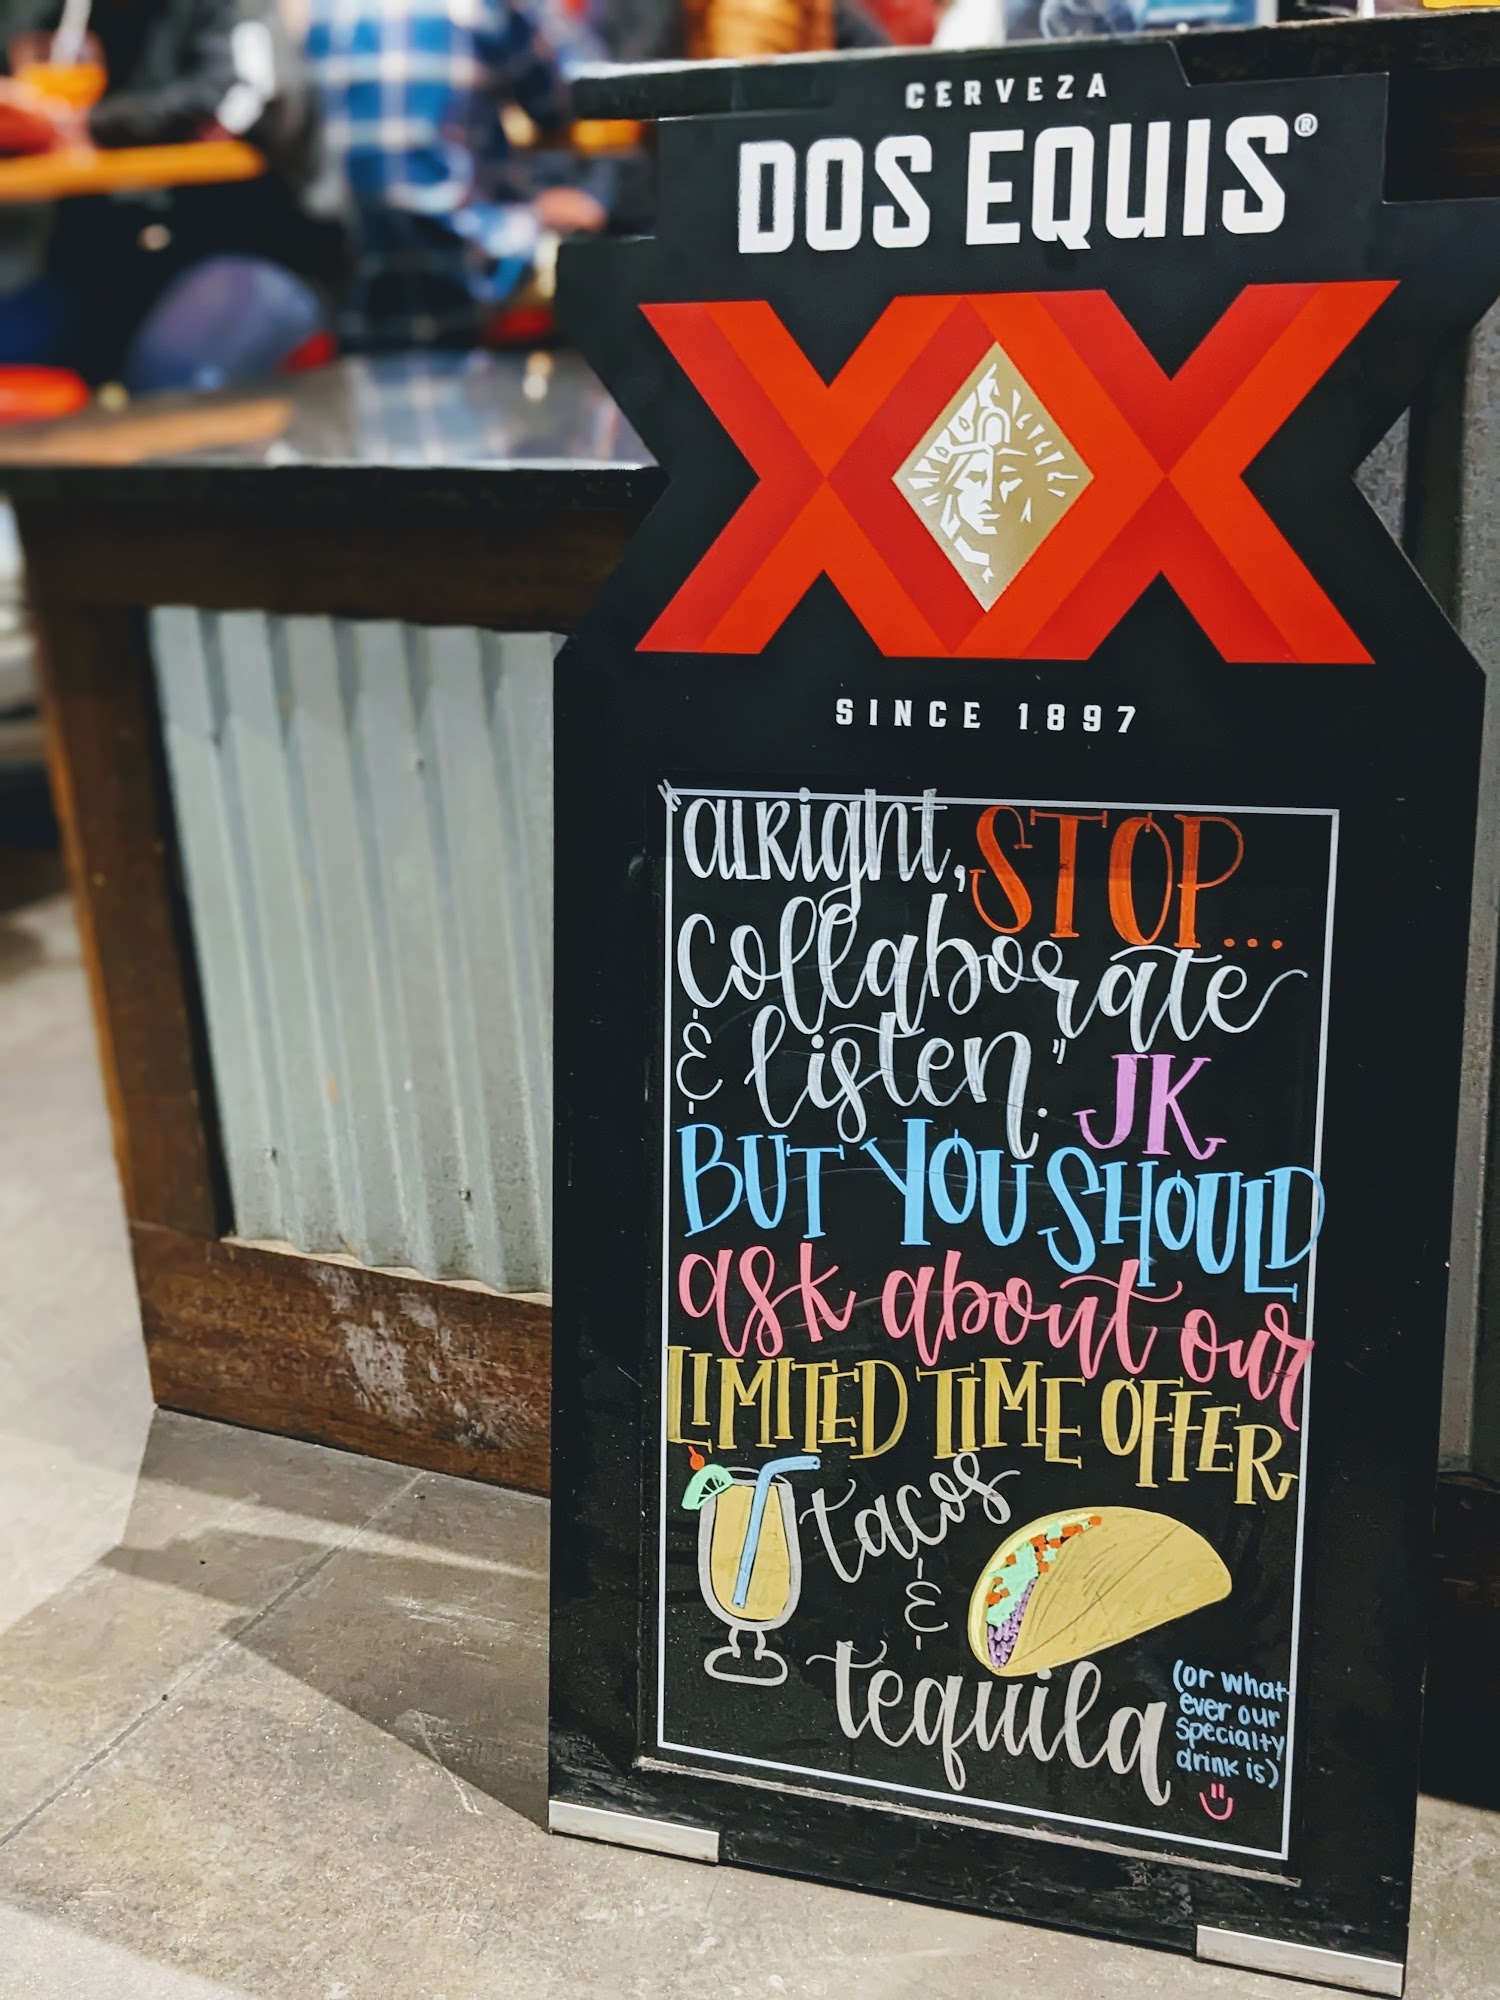 CERVEZA
DOS EQUIS®
XX
SINCE 1897
"alright, STOP...
collaborate
& listen." JK
BUT YOU SHOULD
ask about our
LIMITED TIME OFFER
tacos
&
tequila
(or what-
ever our
specialty
drink is)